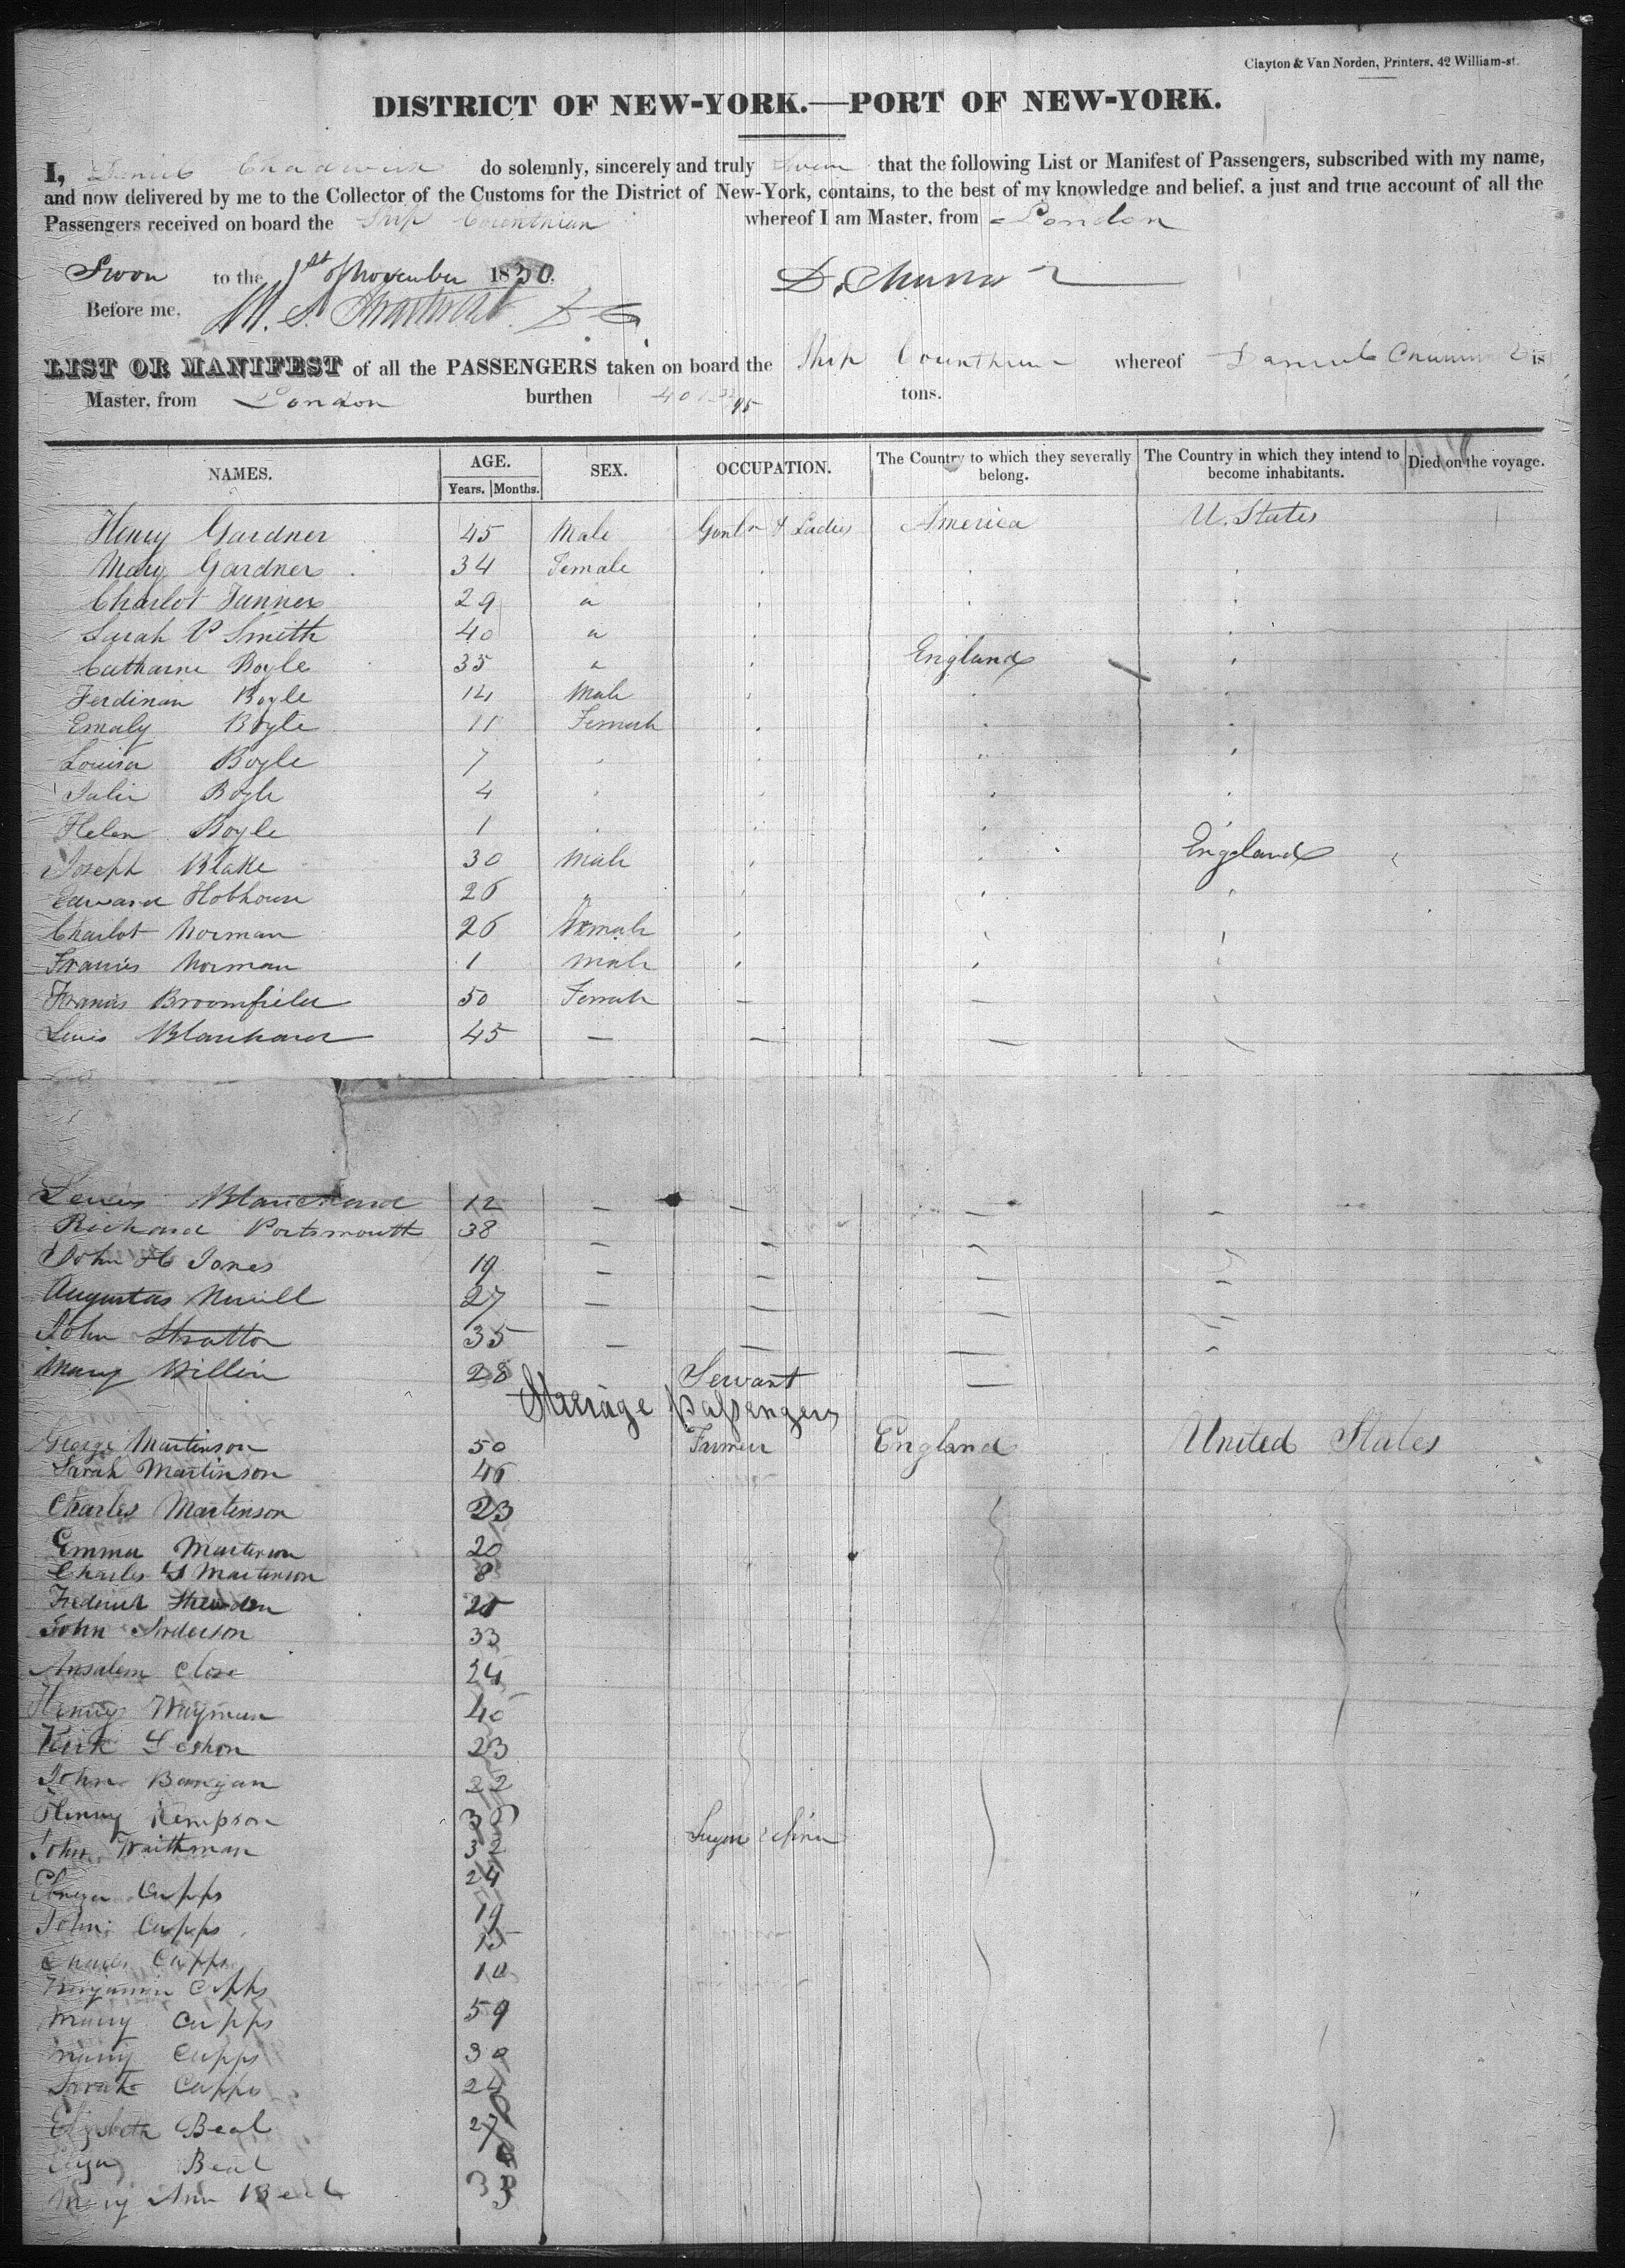 Clayton & Van Norden, Printers, 42 William-st.
DISTRICT OF NEW-YORK.—PORT OF NEW-YORK.
I, Chadwick do solemnly, sincerely and truly that the following List or Manifest of Passengers, subscribed with my name,
and now delivered by me to the Collector of the Customs for the District of New-York, contains, to the best of my knowledge and belief, a just and true account of all the
Passengers received on board the Ship Corinthian whereof I am Master, from London
Sworn to the 1st of November 1830.
Before me,
LIST OR MANIFEST of all the PASSENGERS taken on board the Ship Corinthian whereof is
Master, from London burthen tons.
NAMES. AGE. Years. Months. SEX. OCCUPATION. The Country to which they severally belong. The Country in which they intend to become inhabitants. Died on the voyage.
Henry Gardner 45 Male Gentn & Ladies America U. States
Mary Gardner 34 Female
Charlot Tanner 29 "
Sarah P Smith 40 "
Catharine Boyle 35 " England
Ferdinan Boyle 14 Male
Emaly Boyle 11 Female
Louisa Boyle 7
Julia Boyle 4
Helen Boyle 1
Joseph Blake 30 Male England
Edward Hobhouse 26 "
Charlot Norman 26 Female
Francis Norman 1 male
Francis Broomfield 50 Female — —
Lewis Blanchard 45 — — —
Lewis Blanchard 12 — — — —
Richard Portsmouth 38 — — — —
John H Jones 19 — — — —
Augustus 27 — — — —
John Stratton 35 — — — —
Mary 28 Servant —
Steerage passengers
George Martinson 50 Farmer England United States
Sarah Martinson 46
Charles Martinson 23
Emma Martinson 20
Charles Martinson 8
Frederick
John 33
Ansalem Close 24
Henry Wayman 40
Kirk 23
John 22
Henry Kempson
John Waithman 32
Cupps 24
John Cupps 19
Charles Cupps 15
Benjamin Cupps 10
Mary Cupps 59
Cupps 30
Sarah Cupps
Elizabeth Beal 27
Beal
Mary Ann Beal